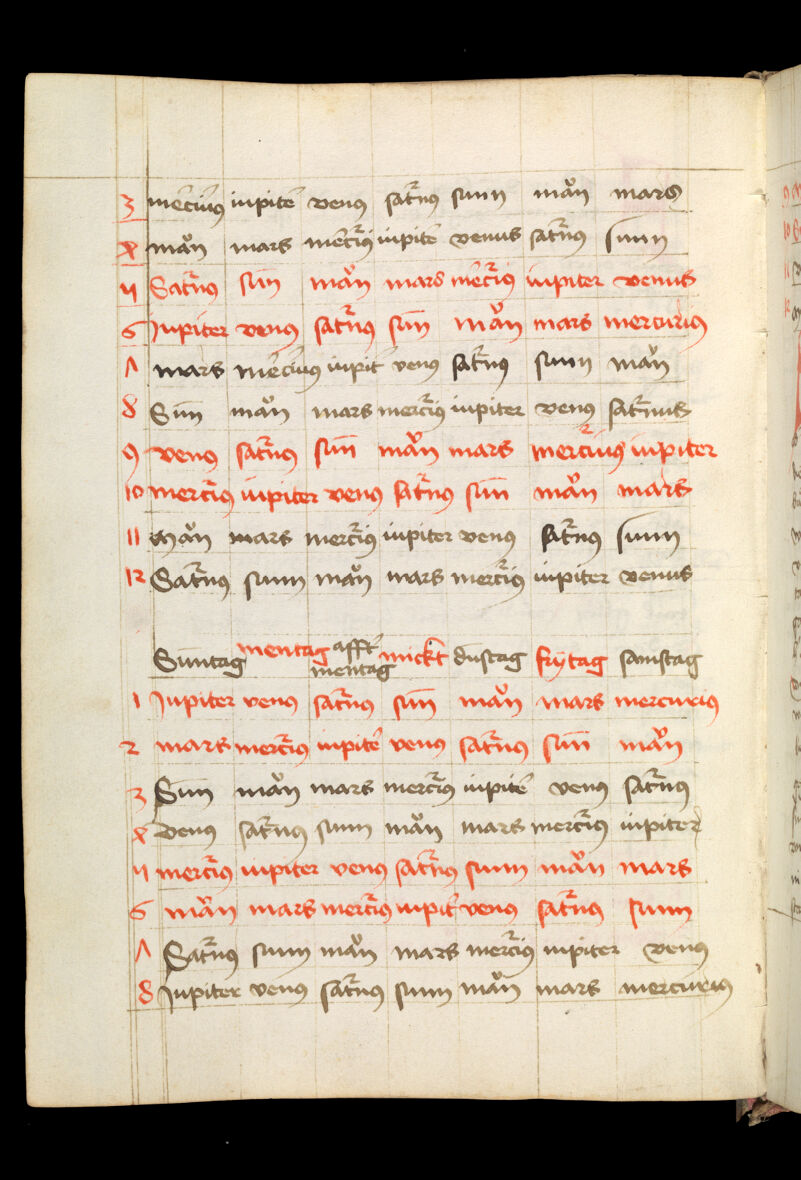 3 mercius iupiter venus satrnus sunn mǎn mars
4 mǎn mars mercrius iupiter venus satrnus sunn
5 Satrnus sun mǎn mars mercrius iupiter venus
6 Jupiter venus satrnus sun mǎn mars mercurius
7 mars mercius iupiter venus satrnus sunn mǎn
8 Sun mǎn mars mercrius iupiter venus satrnus
9 venus satrnus sun mǎn mars mercrius iupiter
10 mercrius iupiter venus satrnus sun mǎn mars
11 mǎn mars mercrius iupiter venus satrnus sunn
12 Satrnus sunn mǎn mars mercrius iupiter venus
Suntag mentag afft mentag mickt dunstag frytag samstag
1 Jupiter venus satrnus sun mǎn mars mercurius
2 mars mercrius iupiter venus satrnus sun mǎn
3 Sun mǎn mars mercrius iupiter venus satrnus
4 venus satrnus sunn mǎn mars mercrius iupiter
5 mercrius iupiter venus satrnus sunn mǎn mars
6 mǎn mars mercrius iupiter venus satrnus sunn
7 Satrnus sunn mǎn mars mercrius iupiter venus
8 Jupiter venus satrnus sunn mǎn mars mercurius